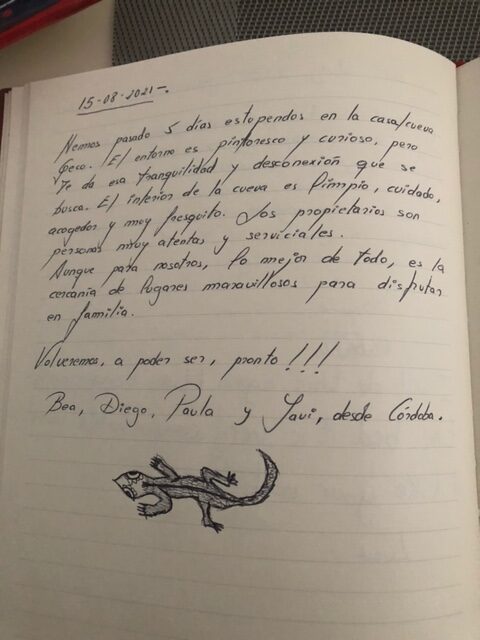 15-08-2021-.
Hemos pasado 5 días estupendos en la casa/cueva
Geco. El entorno es pintoresco y curioso, pero
te da esa tranquilidad y desconexión que se
busca. El interior de la cueva es limpio, cuidado,
acogedor y muy fresquito. Los propietarios son
personas muy atentas y serviciales.
Aunque para nosotros, lo mejor de todo, es la
cercanía de lugares maravillosos para disfrutar
en familia.
Volveremos, a poder ser, pronto!!!
Bea, Diego, Paula y Javi, desde Córdoba.